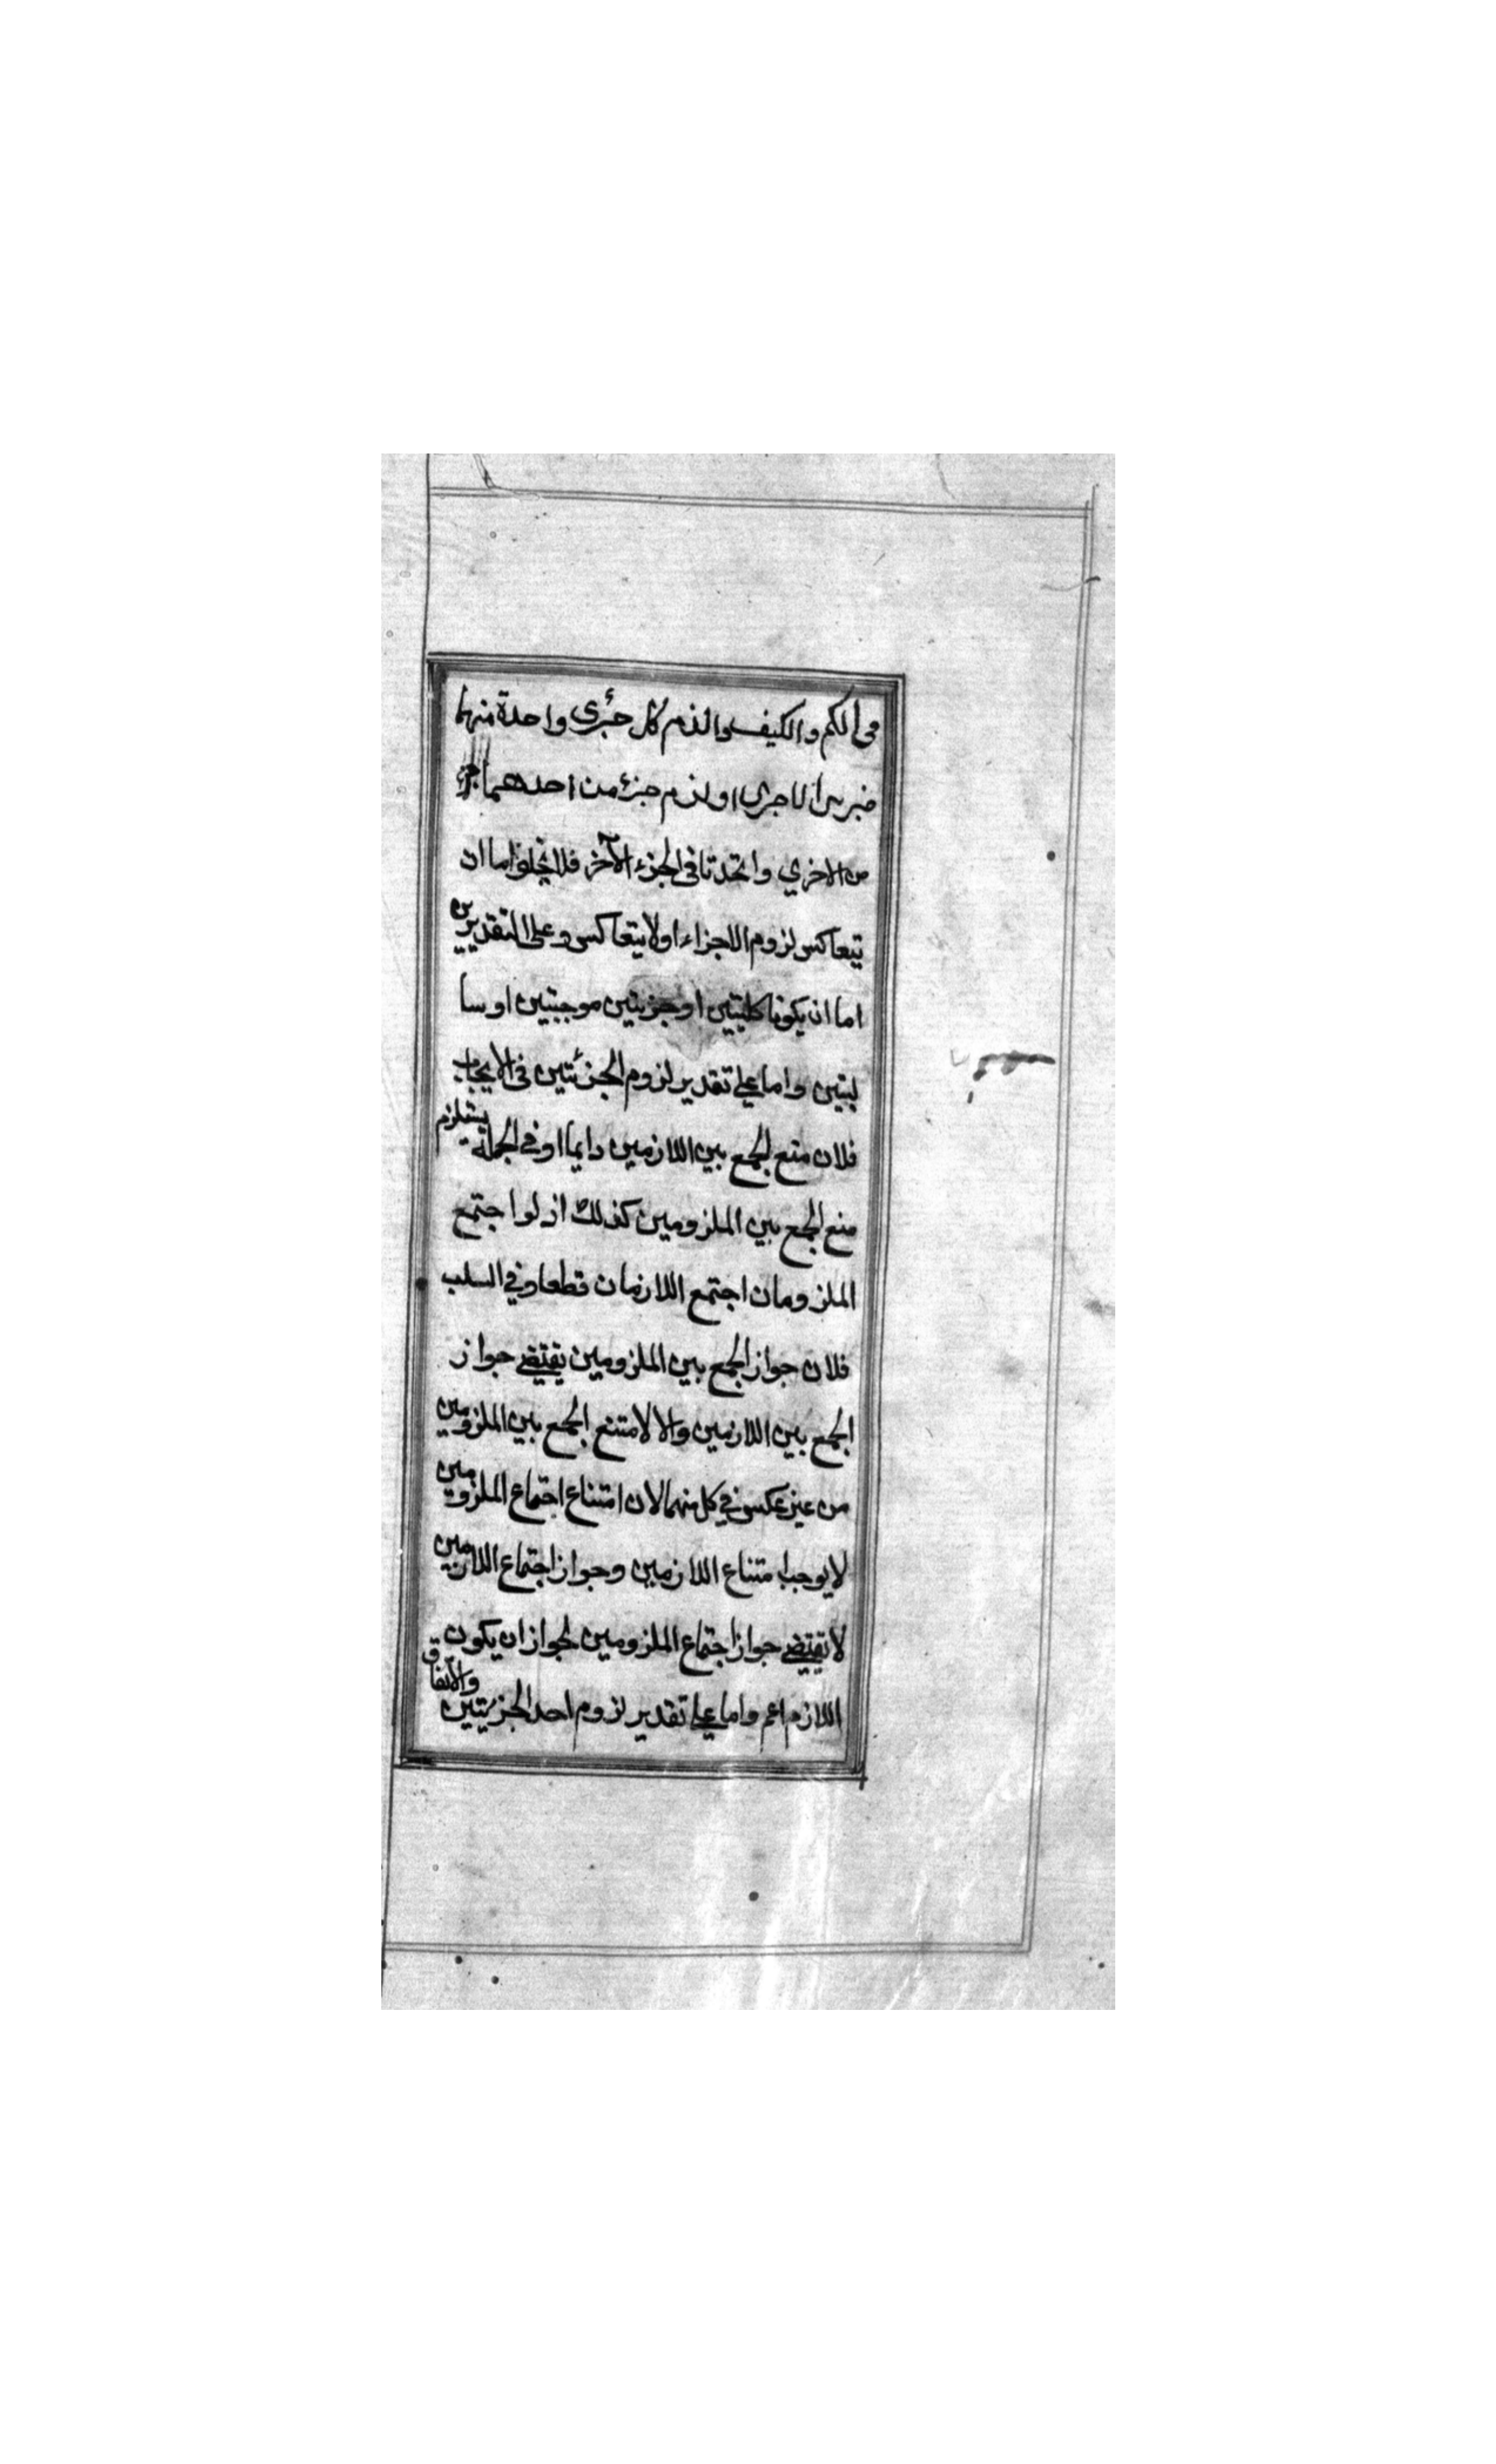 في الكم والكيف والذم كل جزئ واحدة منهما
الاخرى او لذم جزء من احدهما جزء
من الاخري واتحدتا في الجزء الآخر فلا يخلوا اما ان
يتعاكس لزوم الاجزاء او لا يتعاكس وعلى التقديرين
اما ان يكونا كليتين او جزيتين موجبتين او سا
لبتين واما علي تقدير لزوم الجزئتين في الايجاب
فلان منع الجمع بين اللازمين دايما او في الجملة يستلزم
منع الجمع بين الملزومين كذلك اذ لوا جتمع
الملزومان اجتمع اللازمان قطعا وفي السلب
فلان جواز الجمع بين الملزومين يقتضي جواز
الجمع بين اللازمين والا لامتنع الجمع بين الملزومين
من غير عكس في كل منهما لان امتناع اجتماع الملزومين
لا يوجب امتناع اللازمين وجواز اجتماع اللازمين
لا يقتضي جواز اجتماع الملزومين لجواز ان يكون
اللازم اعم واما علي تقدير لزوم احد الجزيتين والاتفاق